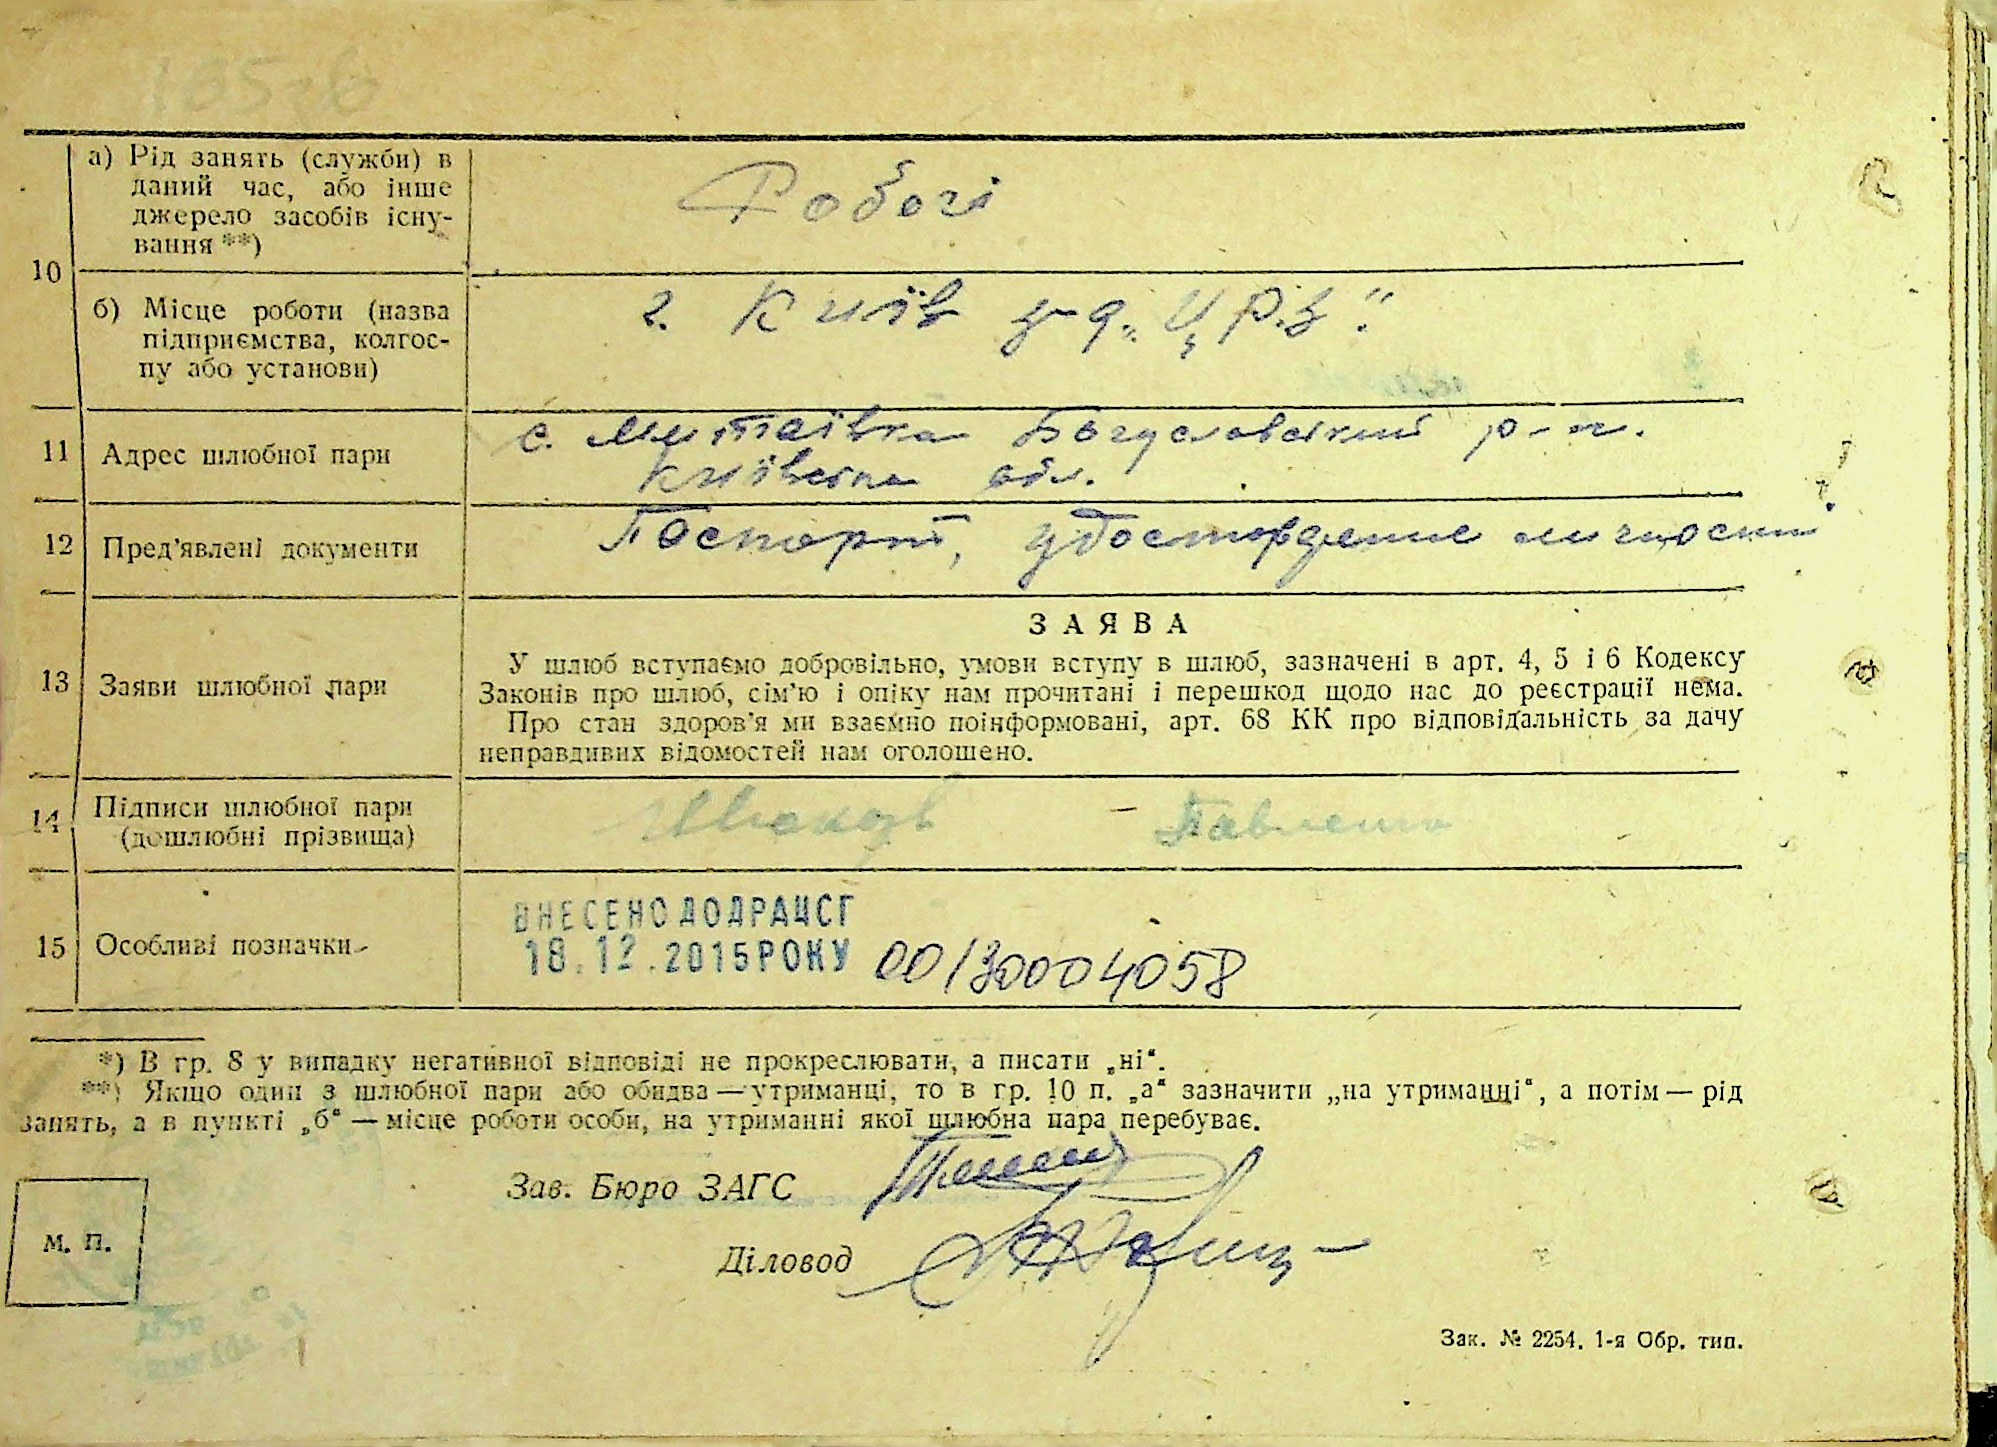 10
а) Рід занять (служби) в
даний час, або інше
джерело засобів існу-
вання **)
Робочі
б) Місце роботи (назва
підприємства, колгос-
пу або установи)
г. Київ з-д „ЦРЗ“.
11
Адрес шлюбної пари
с. Митаївка Богуславський р-н.
Київська обл.
12
Пред’явлені документи
Паспорт, удостовірение личности
13
Заяви шлюбної пари
ЗАЯВА
У шлюб вступаємо добровільно, умови вступу в шлюб, зазначені в арт. 4, 5 і 6 Кодексу
Законів про шлюб, сім’ю і опіку нам прочитані і перешкод щодо нас до реєстрації нема.
Про стан здоров’я ми взаємно поінформовані, арт. 68 КК про відповідальність за дачу
неправдивих відомостей нам оголошено.
14
Підписи шлюбної пари
(дошлюбні прізвища)
15
Особливі позначки
ВНЕСЕНО ДО ДРАЦСГ
18.12.2015 РОКУ 00130004058
*) В гр. 8 у випадку негативної відповіді не прокреслювати, а писати „ні“.
**) Якщо один з шлюбної пари або обидва — утриманці, то в гр. 10 п. „а“ зазначити „на утриманні“, а потім — рід
занять, а в пункті „б“ — місце роботи особи, на утриманні якої шлюбна пара перебуває.
Зав. Бюро ЗАГС
М. П.
Діловод
Зак. № 2254. 1-я Обр. тип.